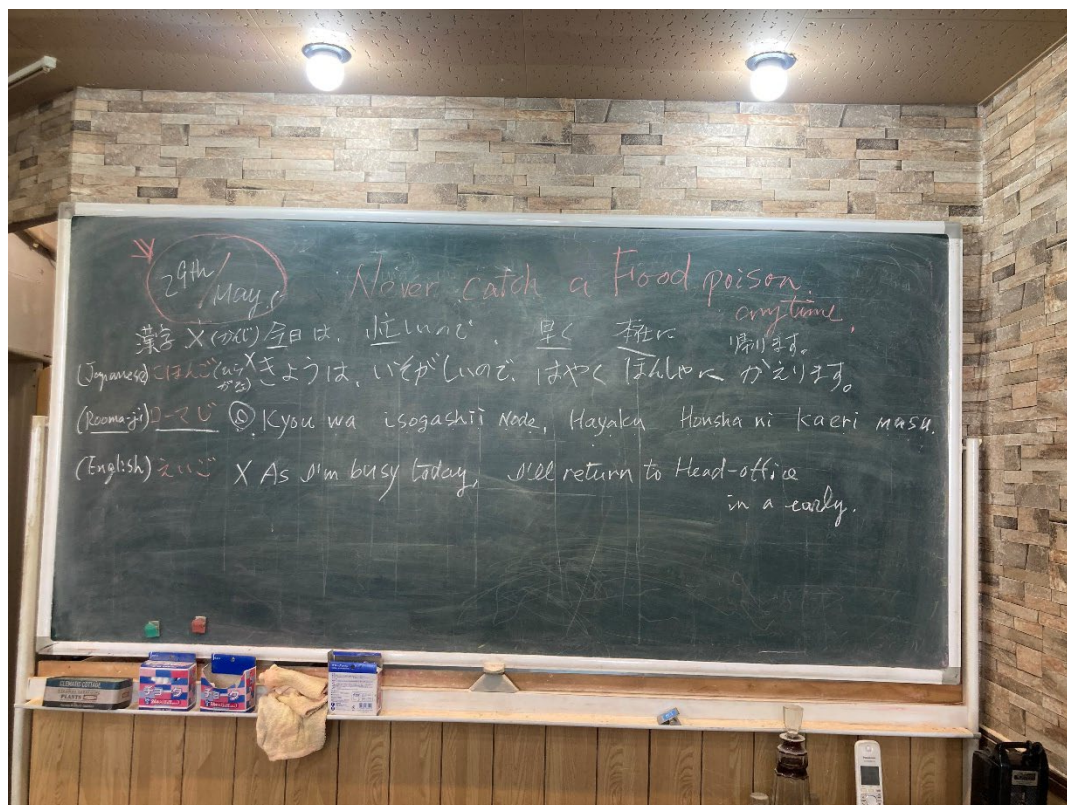 29th/May. Never catch a Flood poison.
anytime.
漢字 X (かんじ) 今日は、忙しいので、早く 本社に 帰ります。
(Japanese) にほんご (ひらがな) X きょうは、いそがしいので、はやく ほんしゃに かえります。
(Rooma-ji) ローマじ ◎. Kyou wa isogashii Node, Hayaku Honsha ni kaeri masu.
(English) えいご X As I'm busy today, I'll return to Head-office
in a early.
チョーク
チョーク